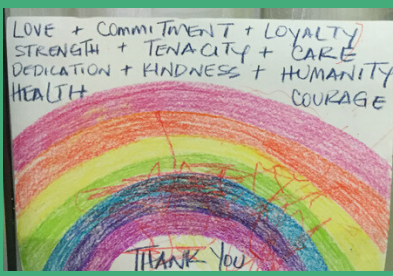 LOVE + COMMITMENT + LOYALTY
STRENGTH + TENACITY + CARE
DEDICATION + KINDNESS + HUMANITY
HEALTH COURAGE
THANK YOU